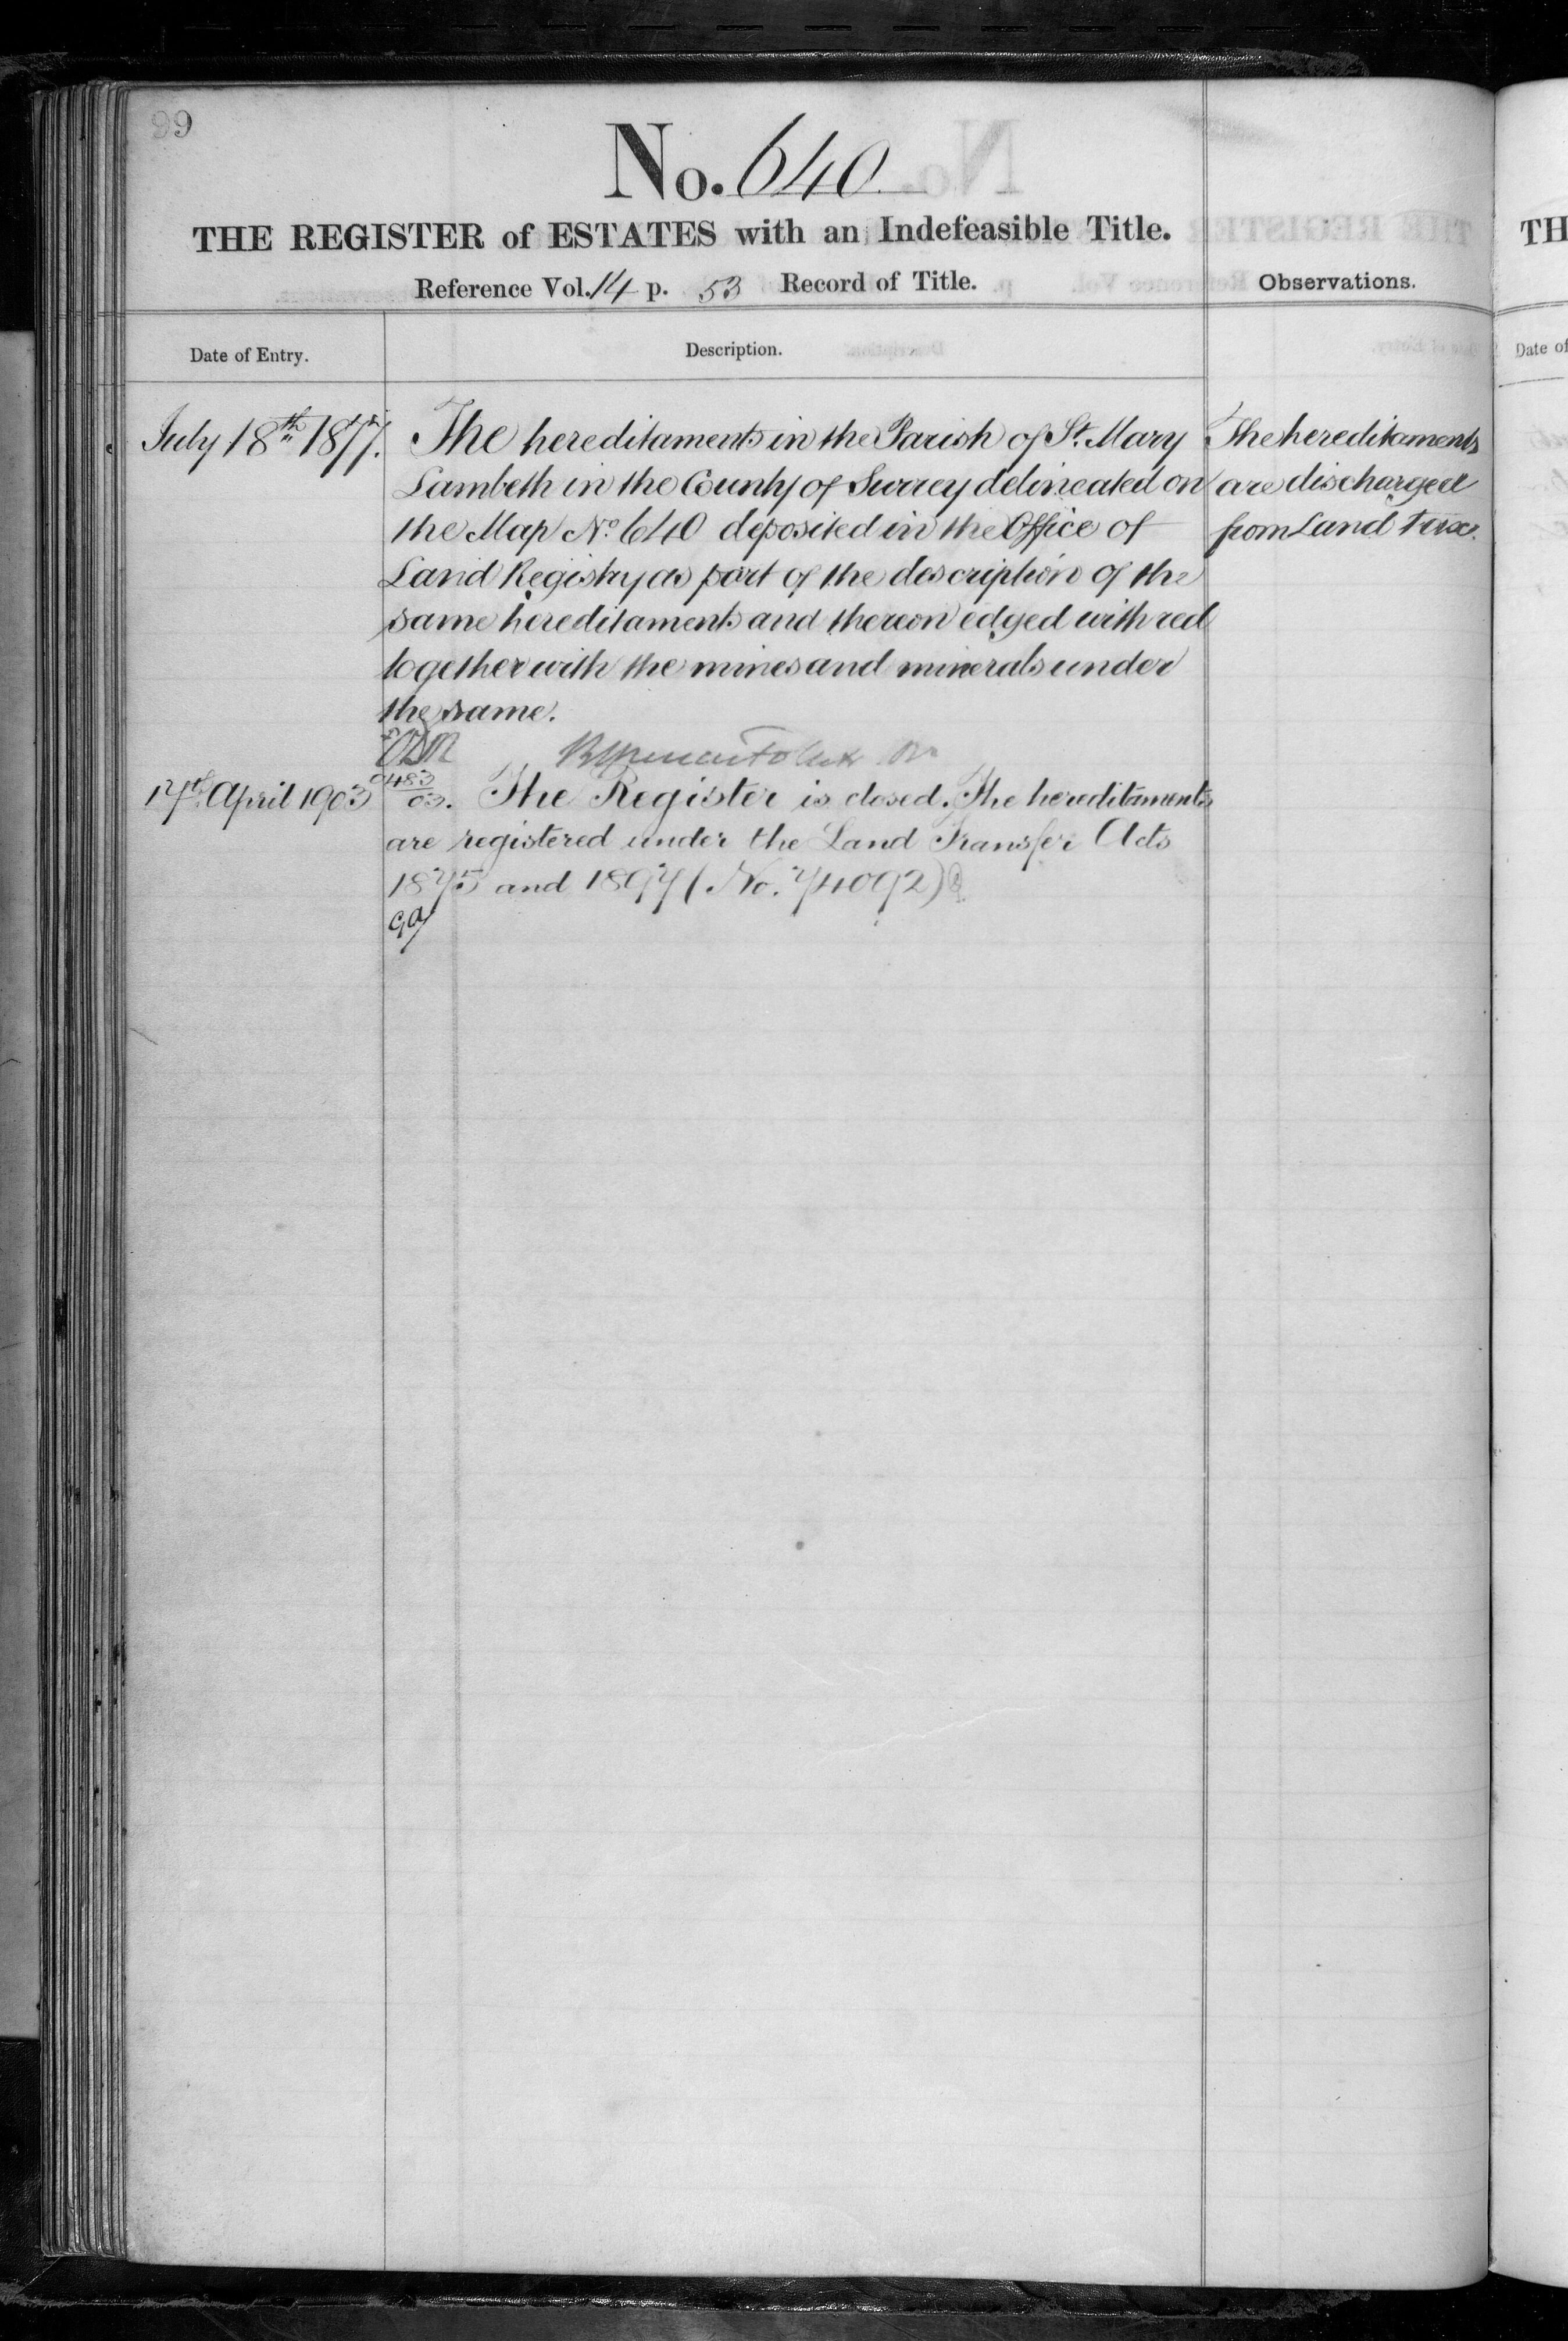 99
No. 640
THE REGISTER of ESTATES with an Indefeasible Title.
Reference Vol. 14 p. 53 Record of Title.
Observations.
Date of Entry.
Description.
July 18th 1877.
The hereditaments in the Parish of St. Mary
Lambeth in the County of Surrey delineated on
the Map No. 640 deposited in the Office of
Land Registry as part of the description of the
same hereditaments and thereon edged with red
together with the mines and minerals under
the same.
The hereditaments
are discharged
from Land tax.
17th April 1903
0483
03. The Register is closed. The hereditaments
are registered under the Land Transfer Acts
1875 and 1897 (No. 74092)
TH
Date of